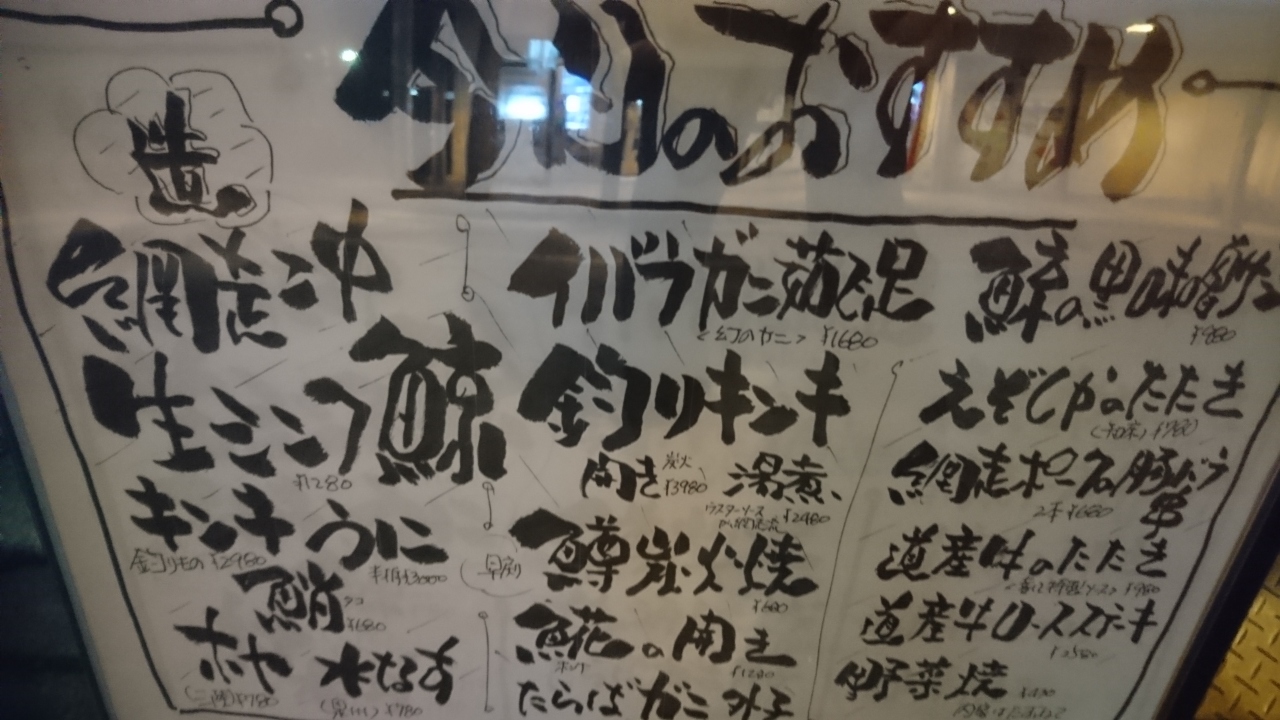 今旬のおすすめ
造
網走沖
生ミンク鯨
¥1280
キンキ うに
釣りもの ¥2980
¥3000
鮹 タコ
¥680
ホヤ 水なす
¥780 (泉州) ¥780
イバラガニ茹で足
<幻のカニ> ¥1680
釣りキンキ
開き 炭火 ¥3980 湯煮
ウスターソース ¥2480
(早割)
鱒炭火焼
¥680
𩸽の開き
ホッケ ¥1280
たらばガニ外子
鯨の黒味噌
¥980
えぞしかのたたき
¥980
網走ポーク豚バラ串
2本 ¥680
道産牛のたたき
¥980
道産牛ロースステーキ
¥2580
野菜焼